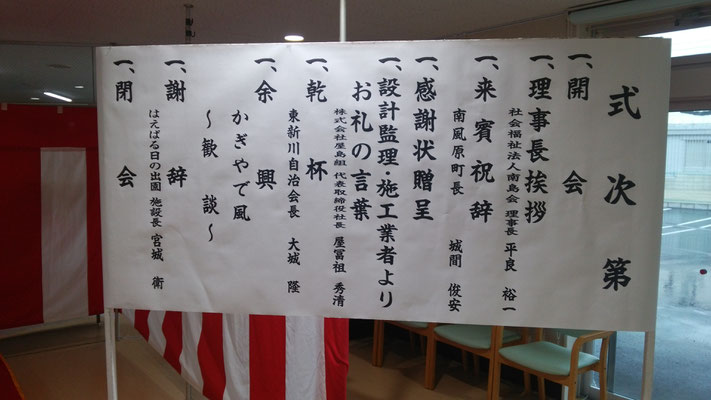 式次第
一、開会
一、理事長挨拶
社会福祉法人南島会 理事長 平良 裕一
一、来賓祝辞
南風原町長 城間 俊安
一、感謝状贈呈
一、設計監理・施工業者より
お礼の言葉
株式会社屋島組 代表取締役社長 屋冨祖 秀清
一、乾杯
東新川自治会長 大城 隆
一、余興
かぎやで風
～歓談～
一、謝辞
はえばる日の出園 施設長 宮城 衛
一、閉会